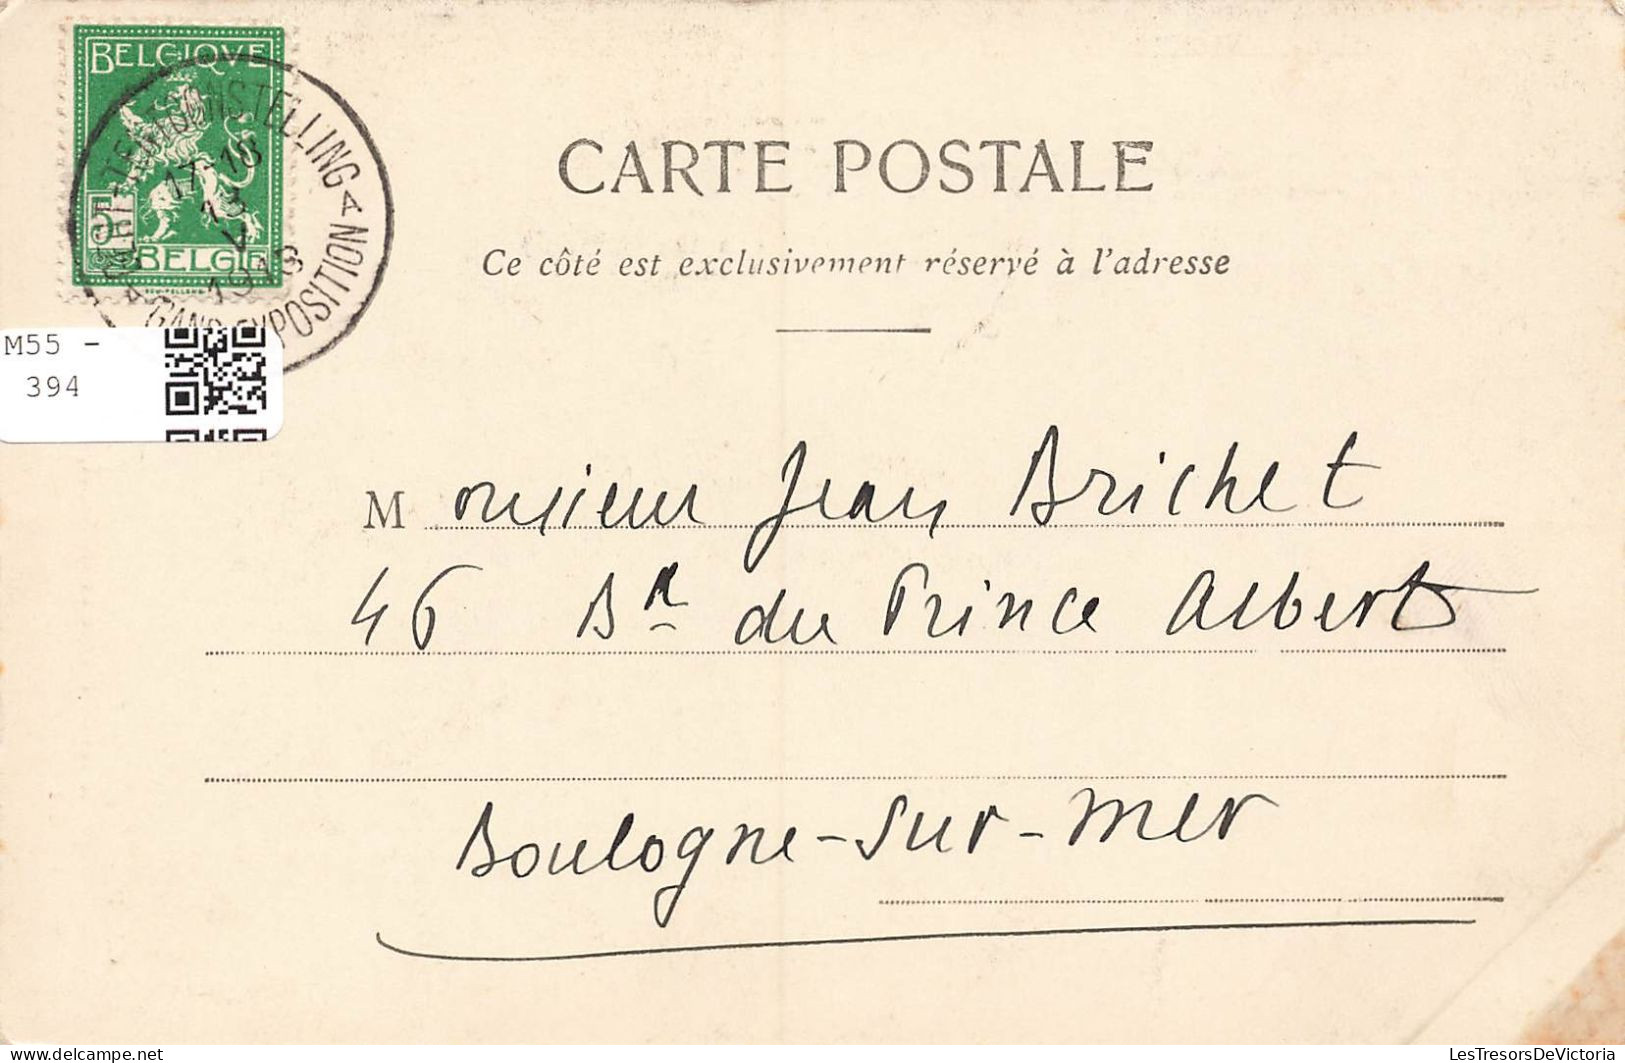 BELGIQVE
5
BELGIË
TENTOONSTELLING A
17-18
13
V
1913
EXPOSITION
M55 -
394
CARTE POSTALE
Ce côté est exclusivement réservé à l'adresse
Monsieur Jean Brichet
46 Bd du Prince Albert
Boulogne-sur-mer
LesTresorsDeVictoria